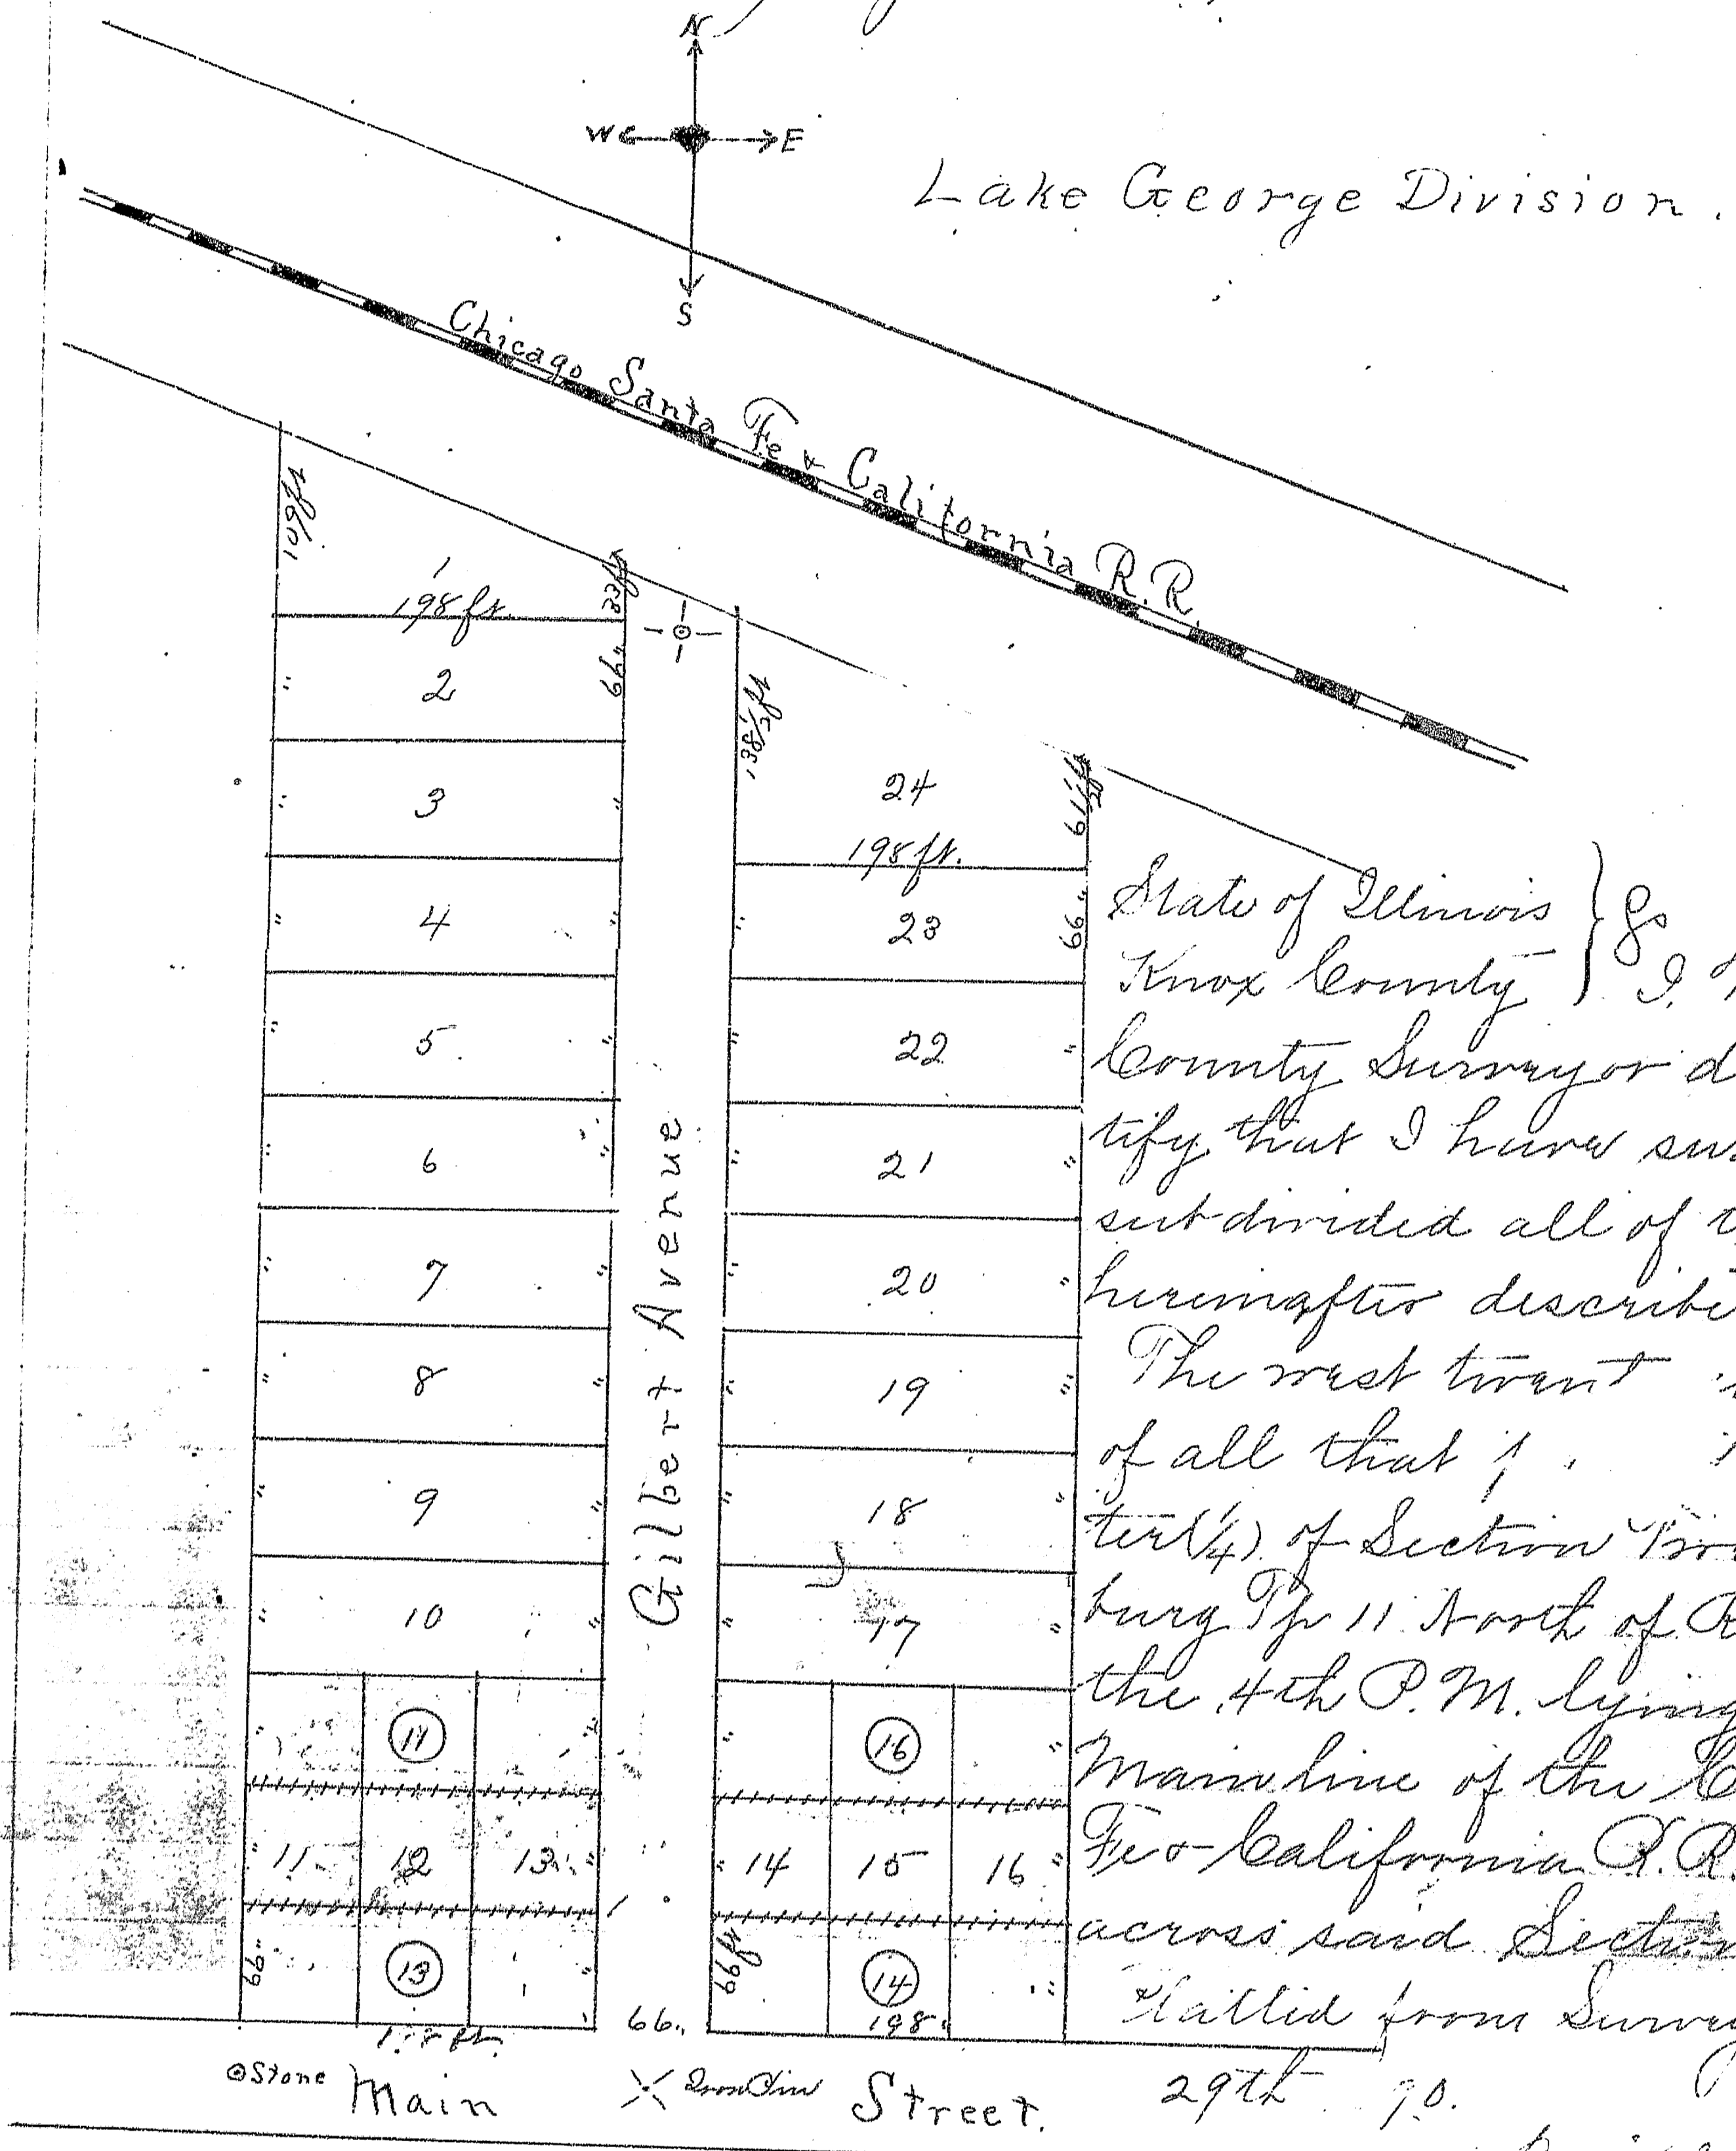 N
W E
S
Lake George Division.
Chicago Santa Fe & California R.R.
109ft
1
198 ft.
33ft
2
66"
3
4
5
6
7
8
9
10
11
11 12 13
13
66"
198 ft.
Gilbert Avenue
66"
133½ft
24
61½ft
198 ft.
23
66"
22
21
20
19
18
17
16
14 15 16
66ft
14
198"
Stone Main Iron Pin Street.
State of Illinois } SS
Knox County I,
County Surveyor d
tify that I have sur
subdivided all of
hereinafter describe
The west twent
of all that
ter (1/4) of Section
burg Tp 11 North of R
the 4th P.M. lying
Main line of the C
Fe & California R.R.
across said Section
Platted from Survey
29th 90.